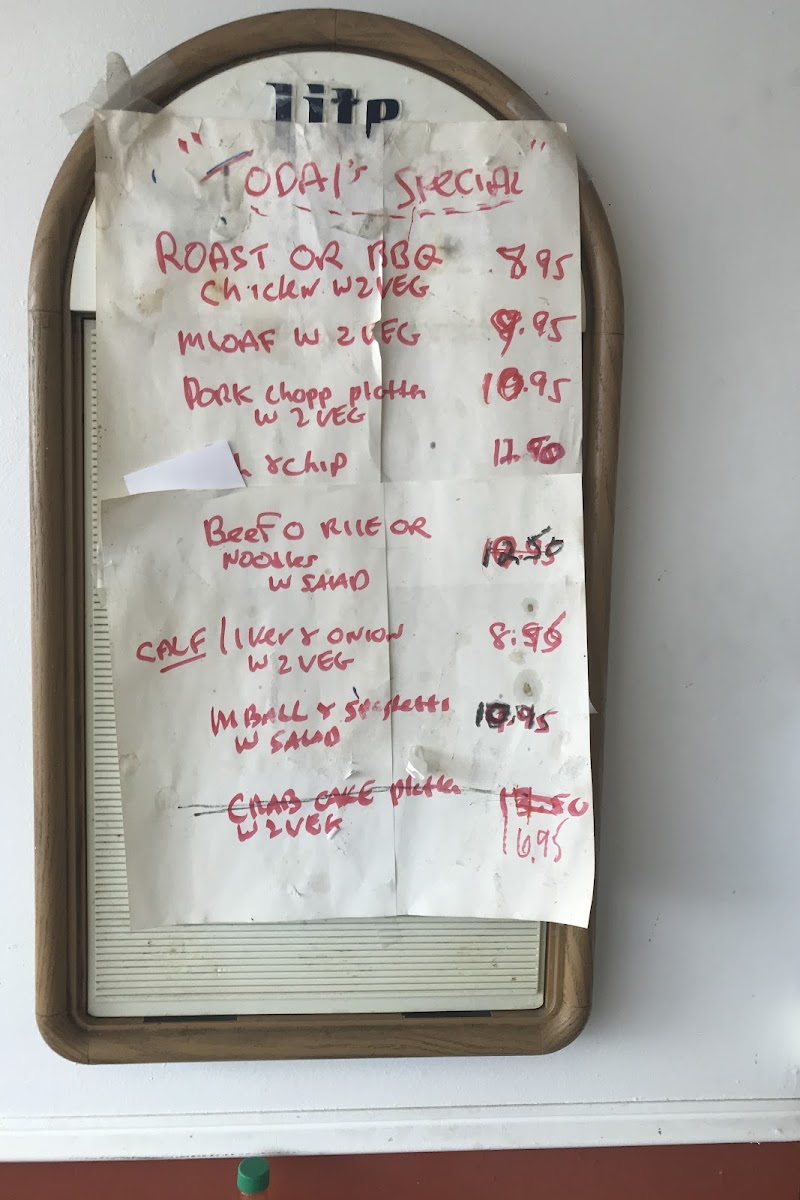 lite
"TODAY'S SPECIAL"
ROAST OR BBQ 8.95
Chicken W2VEG
MLOAF W 2VEG 9.95
PORK Chopp platter 10.95
W 2VEG
h & chip
BeeF O RICE OR
NOODles 12.50
W SALAD
CALF liver & ONION
W 2VEG
MBALL & Spaghetti 10.95
W SALAD
CRAB CAKE platter
W 2VEG 16.95